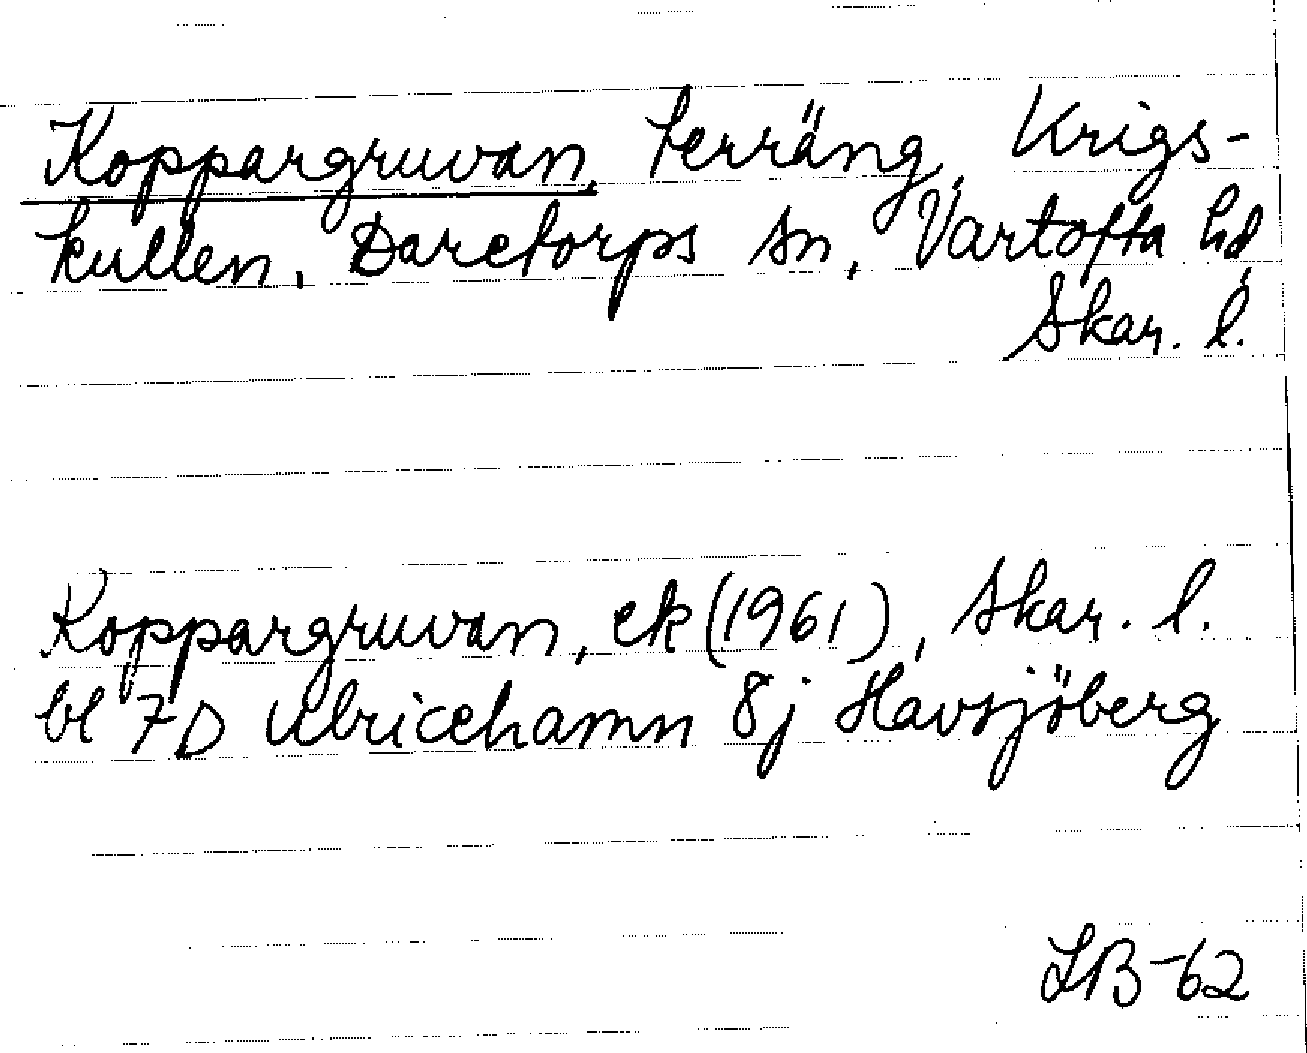 Koppargruvan, terräng, Krigs-
kullen, Daretorps sn, Vartofta hd,
Skar. l.
Koppargruvan, ek (1961), Skar. l.
bl 7D Ulricehamn 8j Havsjöberg
LB-62